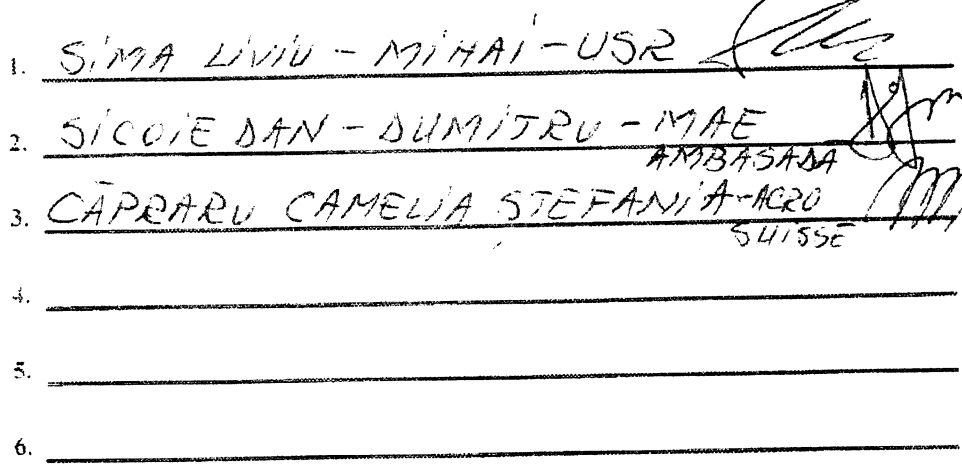 1. SIMA LIVIU - MIHAI - USR
2. SICOIE DAN - DUMITRU - MAE
AMBASADA
3. CĂPRARU CAMELIA ȘTEFANIA - ACRO
SUISSE
4.
5.
6.